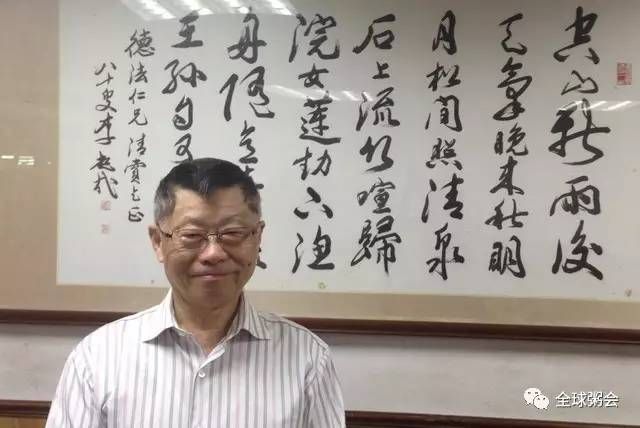 空山新雨後
天氣晚來秋明
月松間照清泉
石上流竹喧歸
浣女蓮動下漁
舟隨意
王孫自可
德法仁兄 清賞 正
八十叟李超哉
全球粥会